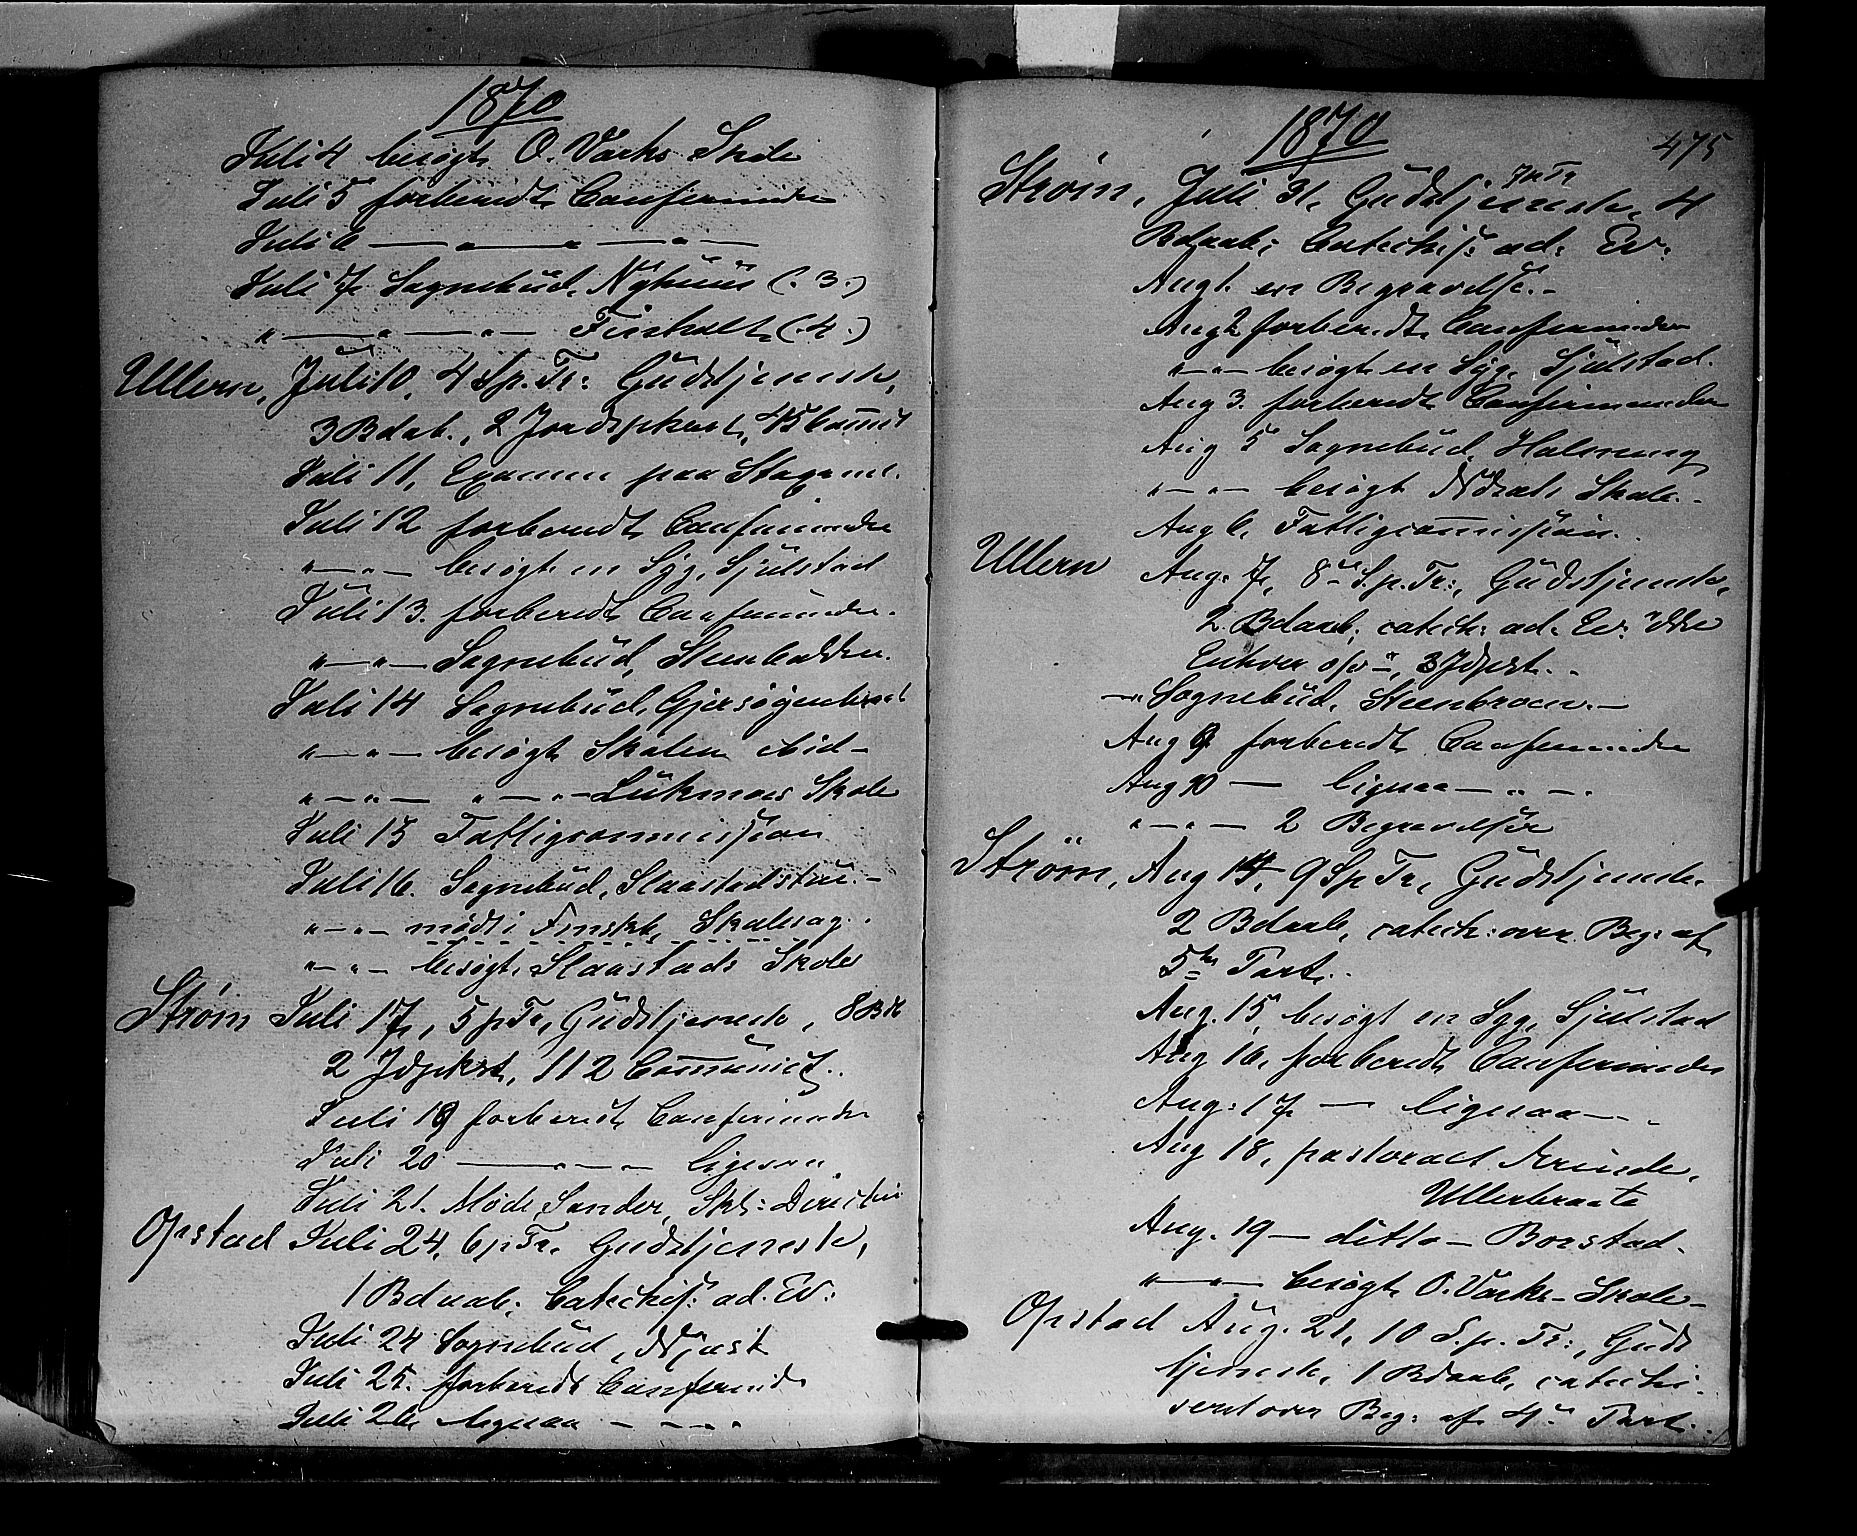 1870
Juli 4 besøgt O. Varks Skole
Juli 5 forberedt Confirmander
Juli 6 — „ — „ — „ —
Juli 7 Sognebud, Nyhuus (: 3 :)
„ — „ — „ — Finholt (: 4 :)
Ullern, Juli 10, 4 S. p. Tr: Gudstjeneste,
3 Bdaab., 2 Jordspkast, 45 Com̅unic
Juli 11, Examen paa
Juli 12 forberedt Confirmander
„ — „ — besøgt en Syg, Sjulstad
Juli 13. forberedt Confirmander.
„ — „ — Sognebud,
Juli 14 Sognebud,
„ — „ — besøgt Skolen ibid —
„ — „ — „ — „ — Lukmoes Skole
Juli 15 Fattigcommission
Juli 16. Sognebud, Slaastadstue. —
„ — „ — mødt i Finskb, Skolesag.
„ — „ — besøgt Slaastads Skole
Strøm Juli 17, 5 p Tr, Gudstjeneste, 8 Bdb
2 Jdpkst, 112 Com̅unict.
Juli 19 forberedt Confirmander
Juli 20 — „ — „ — ligesaa
Juli 21. Møde, Sander, Skl: Direction
Opstad Juli 24, 6 p Tr. Gudstjeneste,
1 Bdaab; Catechis: ad. Ev:
Juli 24 Sognebud,
Juli 25. forberedt Confirmander
Juli 26, ligesaa — — „
1870
475
Strøm, Juli 31, Gudstjeneste, 7 p Tr 4
Bdaab; Catechis: ad: Ev:
Aug 1. en Begravelse. —
Aug 2 forberedt Confirmander
„ — „ — besøgt en Syg, Sjulstad.
Aug 3. forberedt Confirmander
Aug 5 Sognebud, Holmeng
„ — „ — besøgt Skole. —
Aug 6, Fattigcom̅ission.
Ullern Aug. 7, 8de S. p. Tr:, Gudstjeneste,
2 Bdaab; catech: ad: Ev:
3 Jdpkst. —
— „ Sognebud, Steenbraaten. —
Aug 9 forberedt Confirmander
Aug 10 — ligesaa — „ — .
„ — „ — 2 Begravelser
Strøm, Aug 14, 9 S p Tr, Gudstjeneste
2 Bdaab, catech: over Beg: af
5te Part.
Aug. 15, besøgt en Syg, Sjulstad
Aug 16, forberedt Confirmander
Aug: 17 — ligesaa — „
Aug 18, pastoralt Ærinde,
Ullerbraata
Aug. 19 — ditto — Borstad.
„ — „ — besøgt O. Varks — Skole —
Opstad Aug. 21, 10 S. p. Tr:, Guds
tjeneste, 1 Bdaab, catechi-
seret over Beg: af 4de Part.